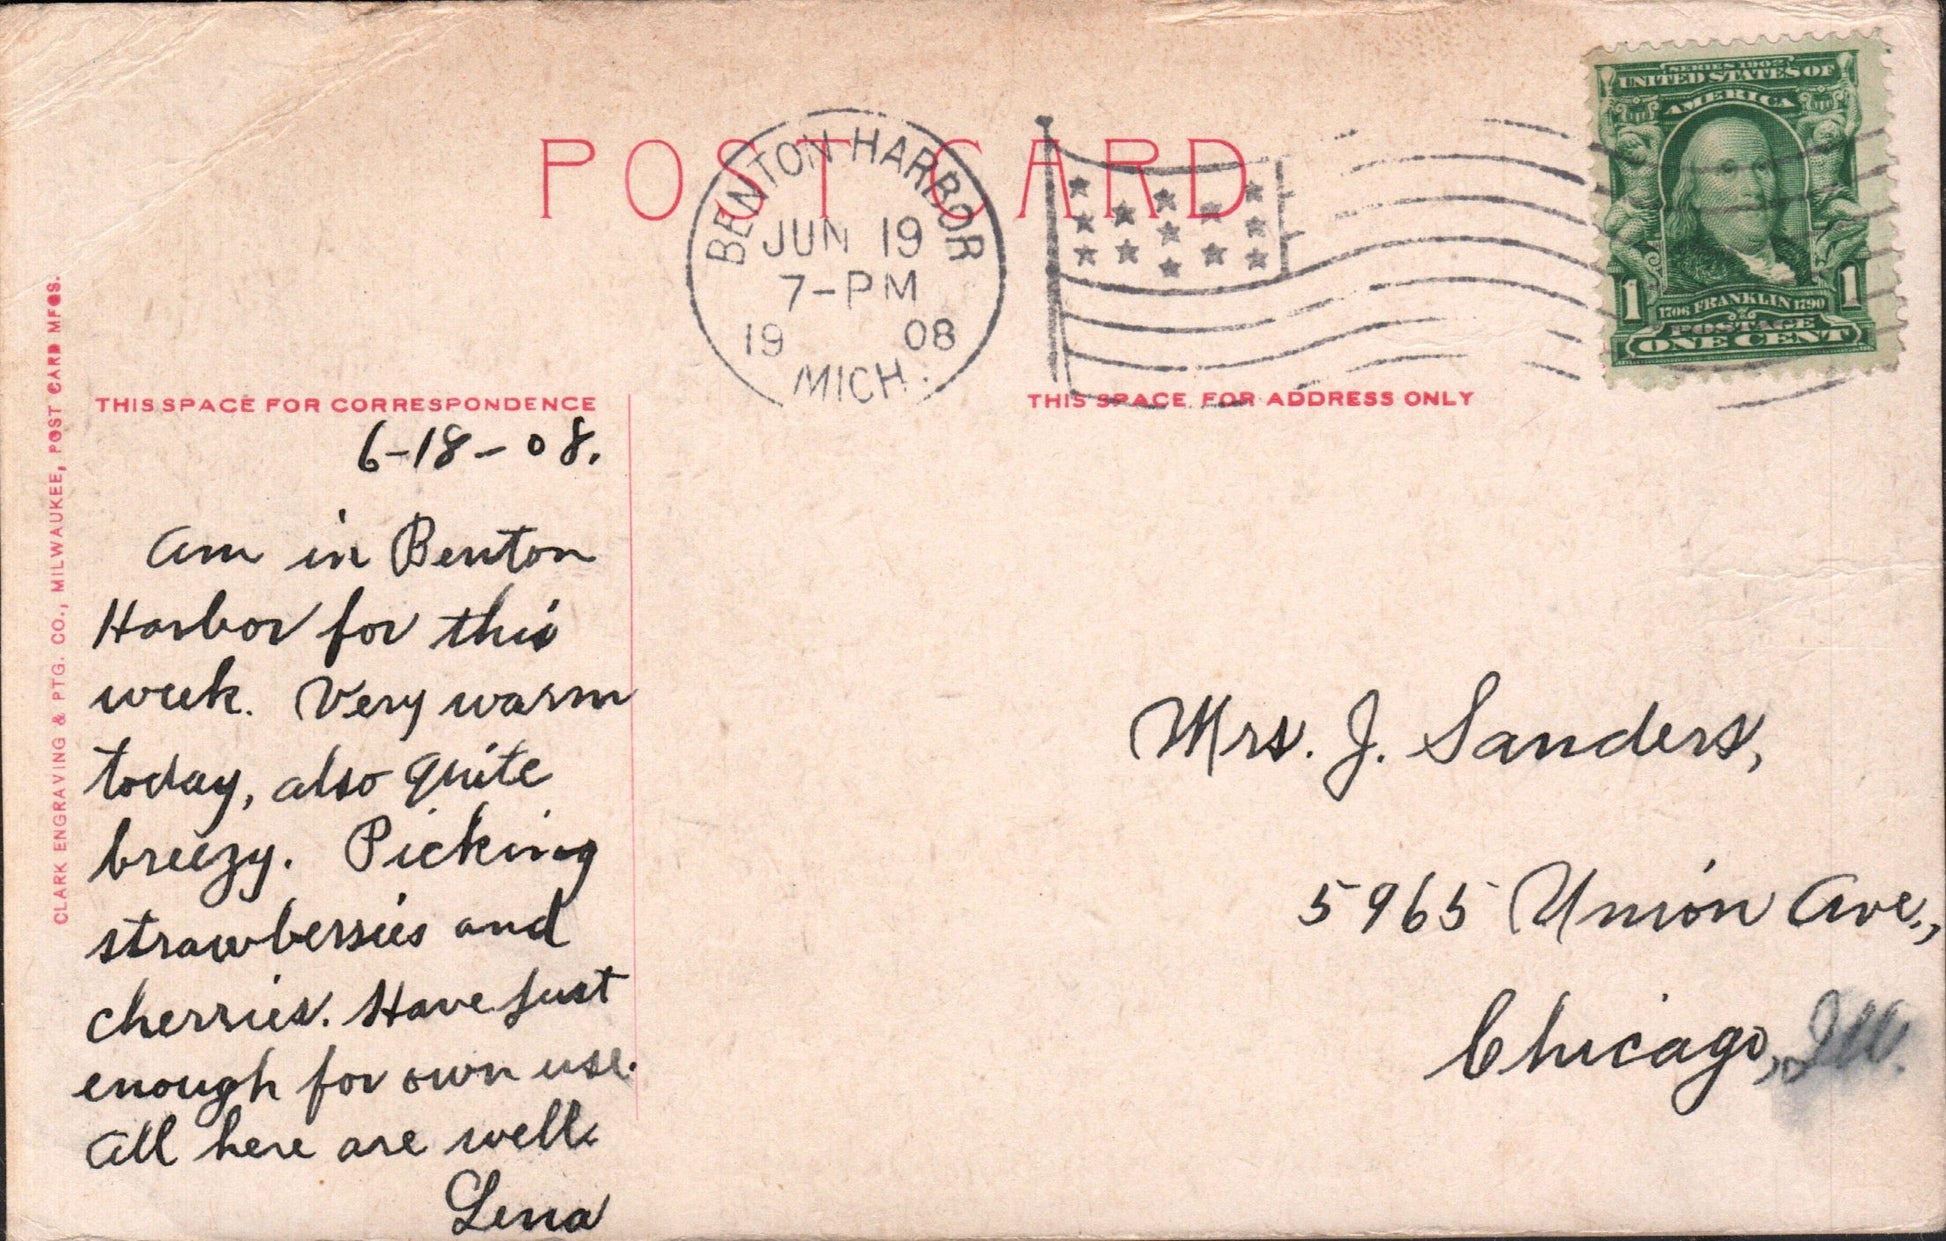 POST CARD
BENTON HARBOR
JUN 19
7-PM
19 08
MICH.
SERIES 1902
UNITED STATES OF
AMERICA
1 1
1706 FRANKLIN 1790
POSTAGE
ONE CENT
CLARK ENGRAVING & PTG. CO., MILWAUKEE, POST CARD MFGS.
THIS SPACE FOR CORRESPONDENCE
6-18-08.
Am in Benton
Harbor for this
week. Very warm
today, also quite
breezy. Picking
strawberries and
cherries. Have just
enough for own use.
All here are well.
Lena
THIS SPACE FOR ADDRESS ONLY
Mrs. J. Sanders,
5965 Union Ave.,
Chicago, Ill.